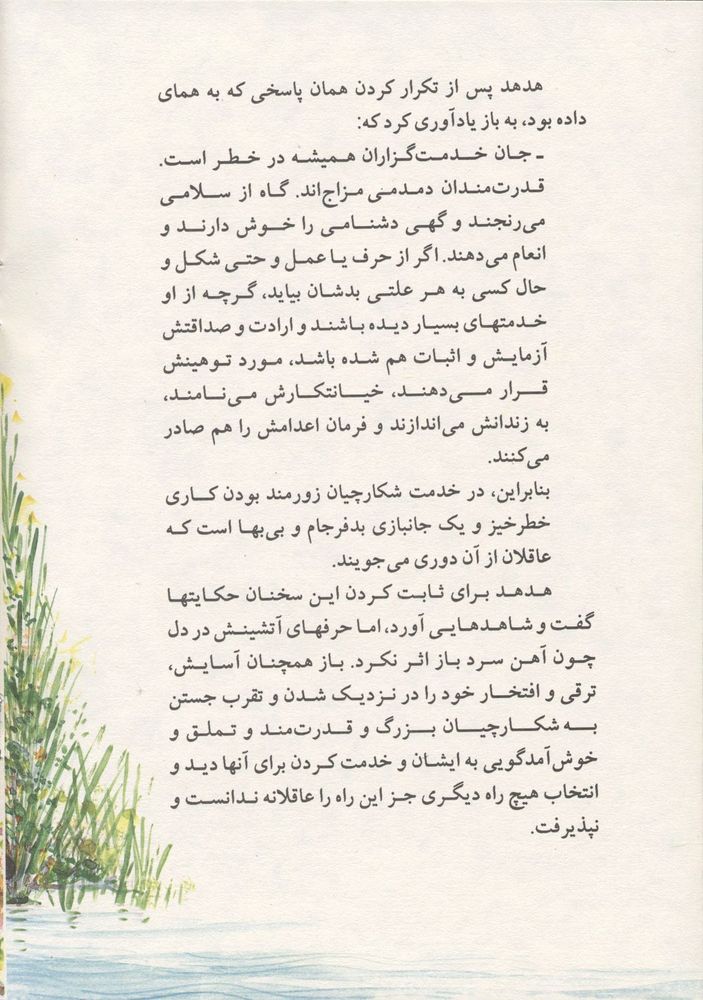 هدهد پس از تکرار کردن همان پاسخی که به همای
داده بود، به باز یادآوری کرد که:
ـ جان خدمت‌گزاران همیشه در خطر است.
قدرت‌مندان دمدمی مزاج‌اند. گاه از سلامی
می‌رنجند و گهی دشنامی را خوش دارند و
انعام می‌دهند. اگر از حرف یا عمل و حتی شکل و
حال کسی به هر علتی بدشان بیاید، گرچه از او
خدمتهای بسیار دیده باشند و ارادت و صداقتش
آزمایش و اثبات هم شده باشد، مورد توهینش
قرار می‌دهند، خیانتکارش می‌نامند،
به زندانش می‌اندازند و فرمان اعدامش را هم صادر
می‌کنند.
بنابراین، در خدمت شکارچیان زورمند بودن کاری
خطرخیز و یک جانبازی بدفرجام و بی‌بها است که
عاقلان از آن دوری می‌جویند.
هدهد برای ثابت کردن این سخنان حکایتها
گفت و شاهدهایی آورد، اما حرفهای آتشینش در دل
چون آهن سرد باز اثر نکرد. باز همچنان آسایش،
ترقی و افتخار خود را در نزدیک شدن و تقرب جستن
به شکارچیان بزرگ و قدرت‌مند و تملق و
خوش‌آمدگویی به ایشان و خدمت کردن برای آنها دید و
انتخاب هیچ راه دیگری جز این راه را عاقلانه ندانست و
نپذیرفت.